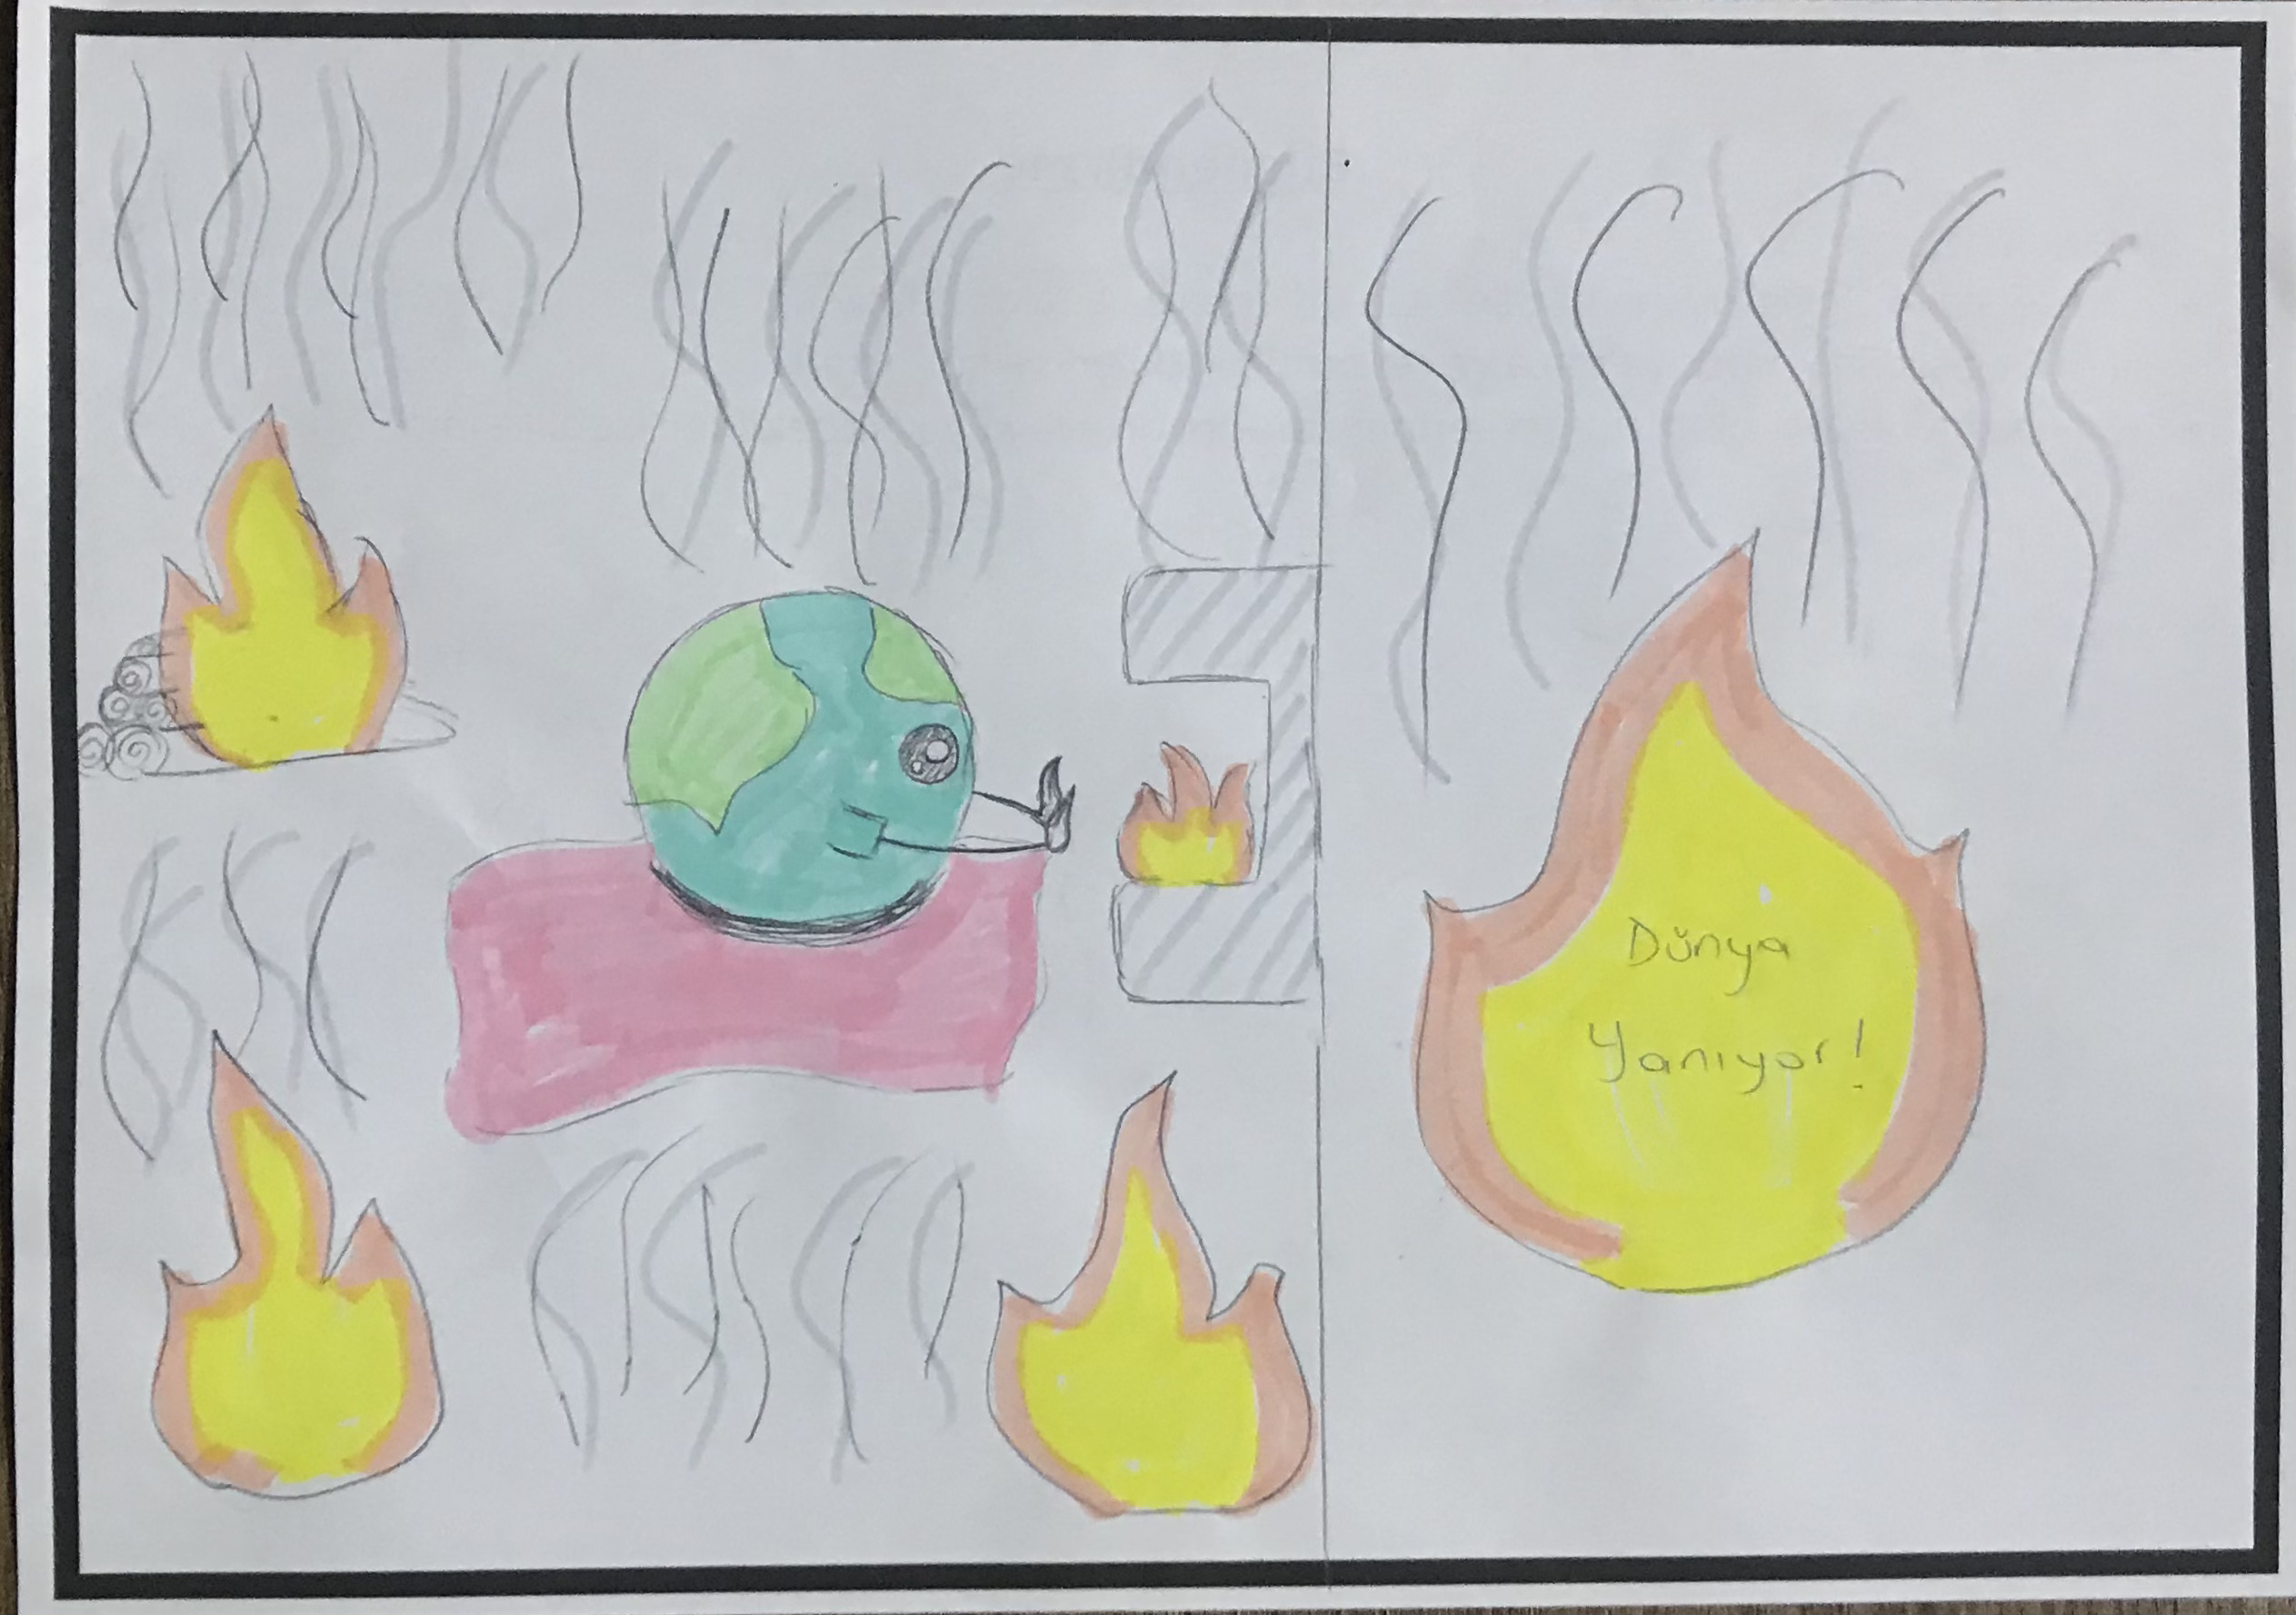 Dünya
Yanıyor!